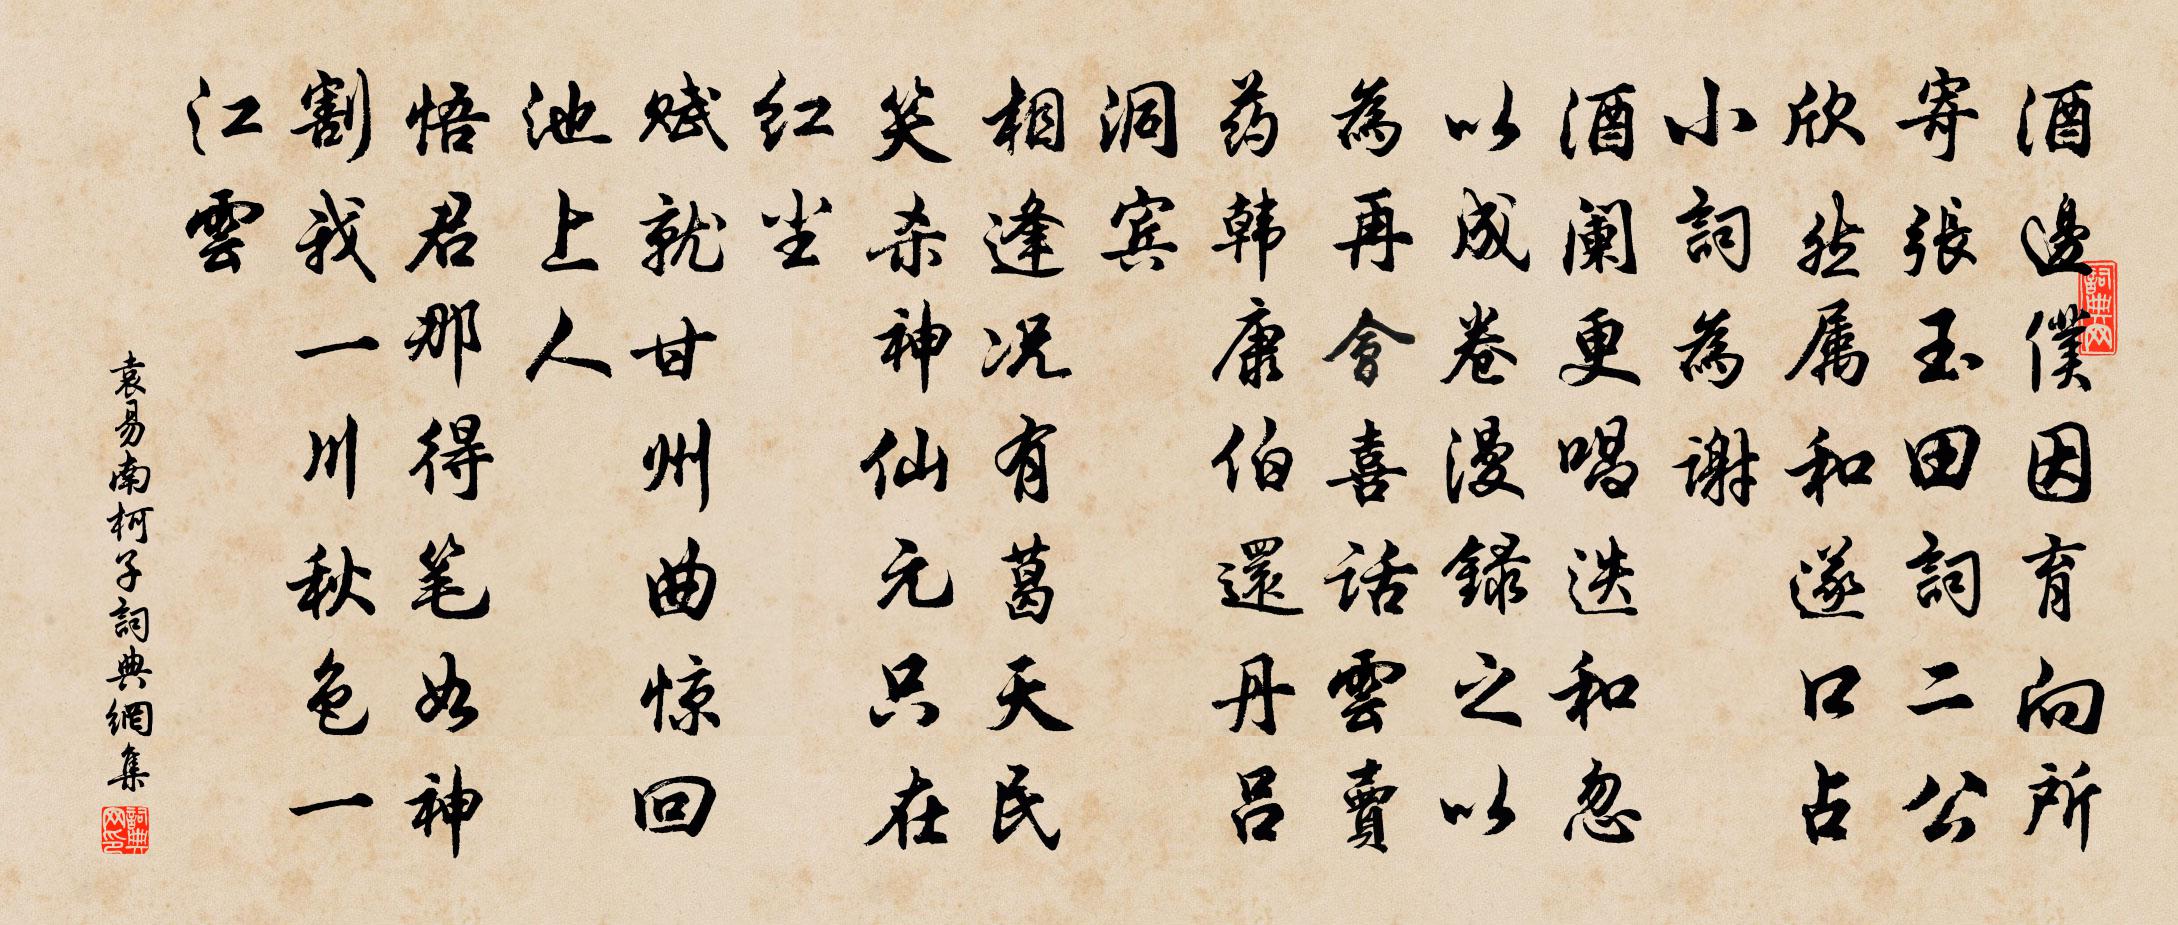 酒邊僕因育向所
寄張玉田詞二公
欣然属和遂口占
小詞為謝
酒阑更唱迭和忽
以成卷漫録之以
為再會喜話雲賣
药韩康伯還丹吕
洞宾
相逢况有葛天民
笑杀神仙元只在
红尘
赋就甘州曲惊回
池上人
悟君那得笔如神
割我一川秋色一
江雲
袁易南柯子詞典網集
詞典网
詞典网印